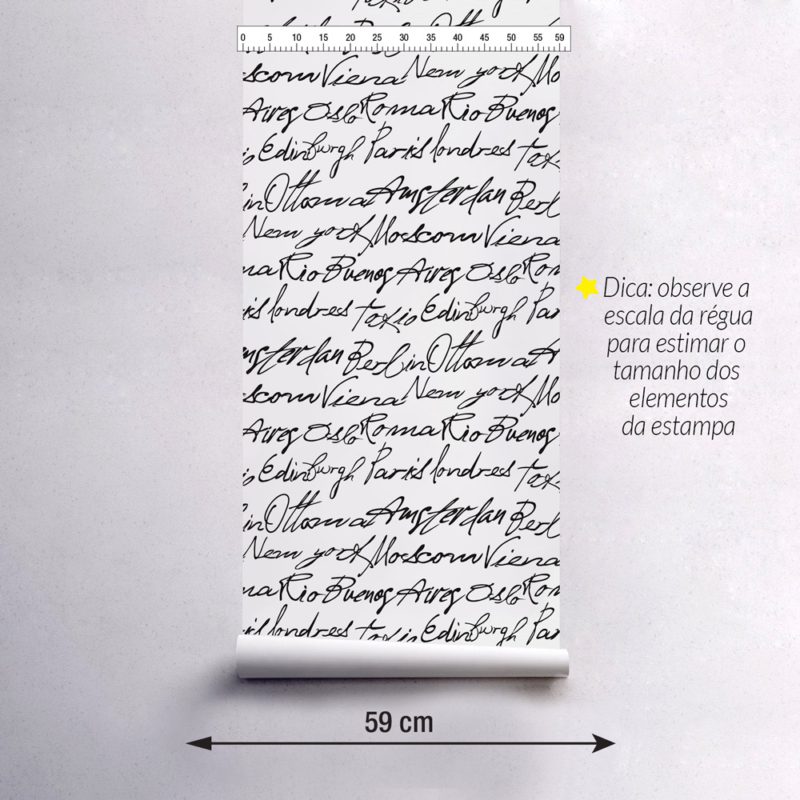 0 5 10 15 20 25 30 35 40 45 50 55 59
scom Viena New york Mo
Aires Oslo Roma Rio Buenos
o Edinburgh Paris londres Tox
lin Ottowa Amsterdan Berl
New york Moscom Viena
ma Rio Buenos Aires Oslo Rom
ris londres Toxio Edinburgh Par
msterdan Berlin Ottowa A
scom Viena New york Mo
Aires Oslo Roma Rio Buenos
o Edinburgh Paris londres Tox
lin Ottowa Amsterdan Berl
New york Moscom Viena
ma Rio Buenos Aires Oslo Rom
ris londres Toxio Edinburgh Par
Dica: observe a
escala da régua
para estimar o
tamanho dos
elementos
da estampa
59 cm